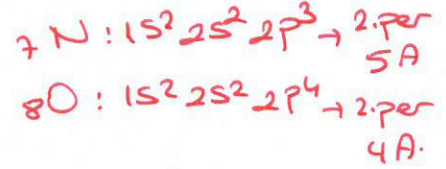 ₇N : 1s² 2s² 2p³ → 2.per
5A
₈O : 1s² 2s² 2p⁴ → 2.per
4A.